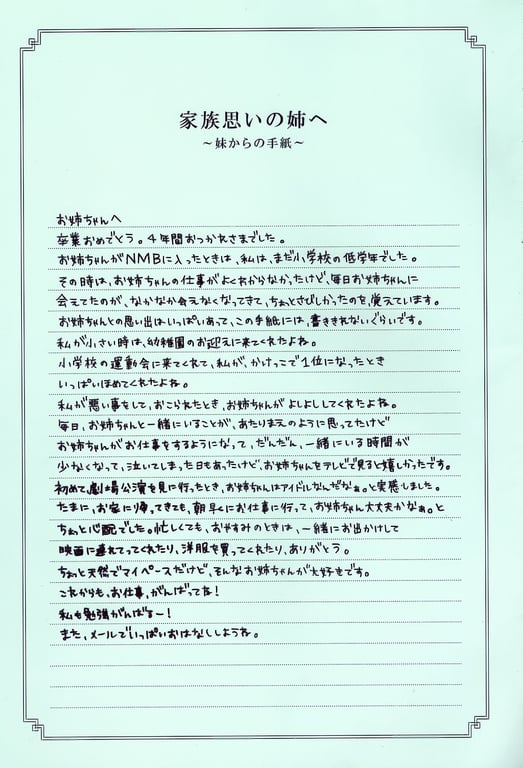 家族思いの姉へ
～妹からの手紙～
お姉ちゃんへ
卒業おめでとう。4年間おつかれさまでした。
お姉ちゃんがNMBに入ったときは、私は、まだ小学校の低学年でした。
その時は、お姉ちゃんの仕事がよくわからなかったけど、毎日お姉ちゃんに
会えてたのが、なかなか会えなくなってきて、ちょっとさびしかったのを、覚えています。
お姉ちゃんとの思い出はいっぱいあって、この手紙には、書ききれないぐらいです。
私が小さい時は、幼稚園のお迎えに来てくれたよね。
小学校の運動会に来てくれて、私が、かけっこで1位になったとき
いっぱいほめてくれたよね。
私が悪い事をして、おこられたとき、お姉ちゃんがよしよししてくれたよね。
毎日、お姉ちゃんと一緒にいることが、あたりまえのように思ってたけど
お姉ちゃんがお仕事をするようになって、だんだん、一緒にいる時間が
少なくなって、泣いてしまった日もあったけど、お姉ちゃんをテレビで見ると嬉しかったです。
初めて劇場公演を見に行ったとき、お姉ちゃんはアイドルなんだなぁ。と実感しました。
たまに、お家に帰ってきても、朝早くにお仕事に行って、お姉ちゃん大丈夫かなぁ。と
ちょっと心配でした。忙しくても、おやすみのときは、一緒にお出かけして
映画に連れてってくれたり、洋服を買ってくれたり、ありがとう。
ちょっと天然でマイペースだけど、そんなお姉ちゃんが大好きです。
これからも、お仕事、がんばってな!
私も勉強がんばるー!
また、メールでいっぱいおはなししようね。